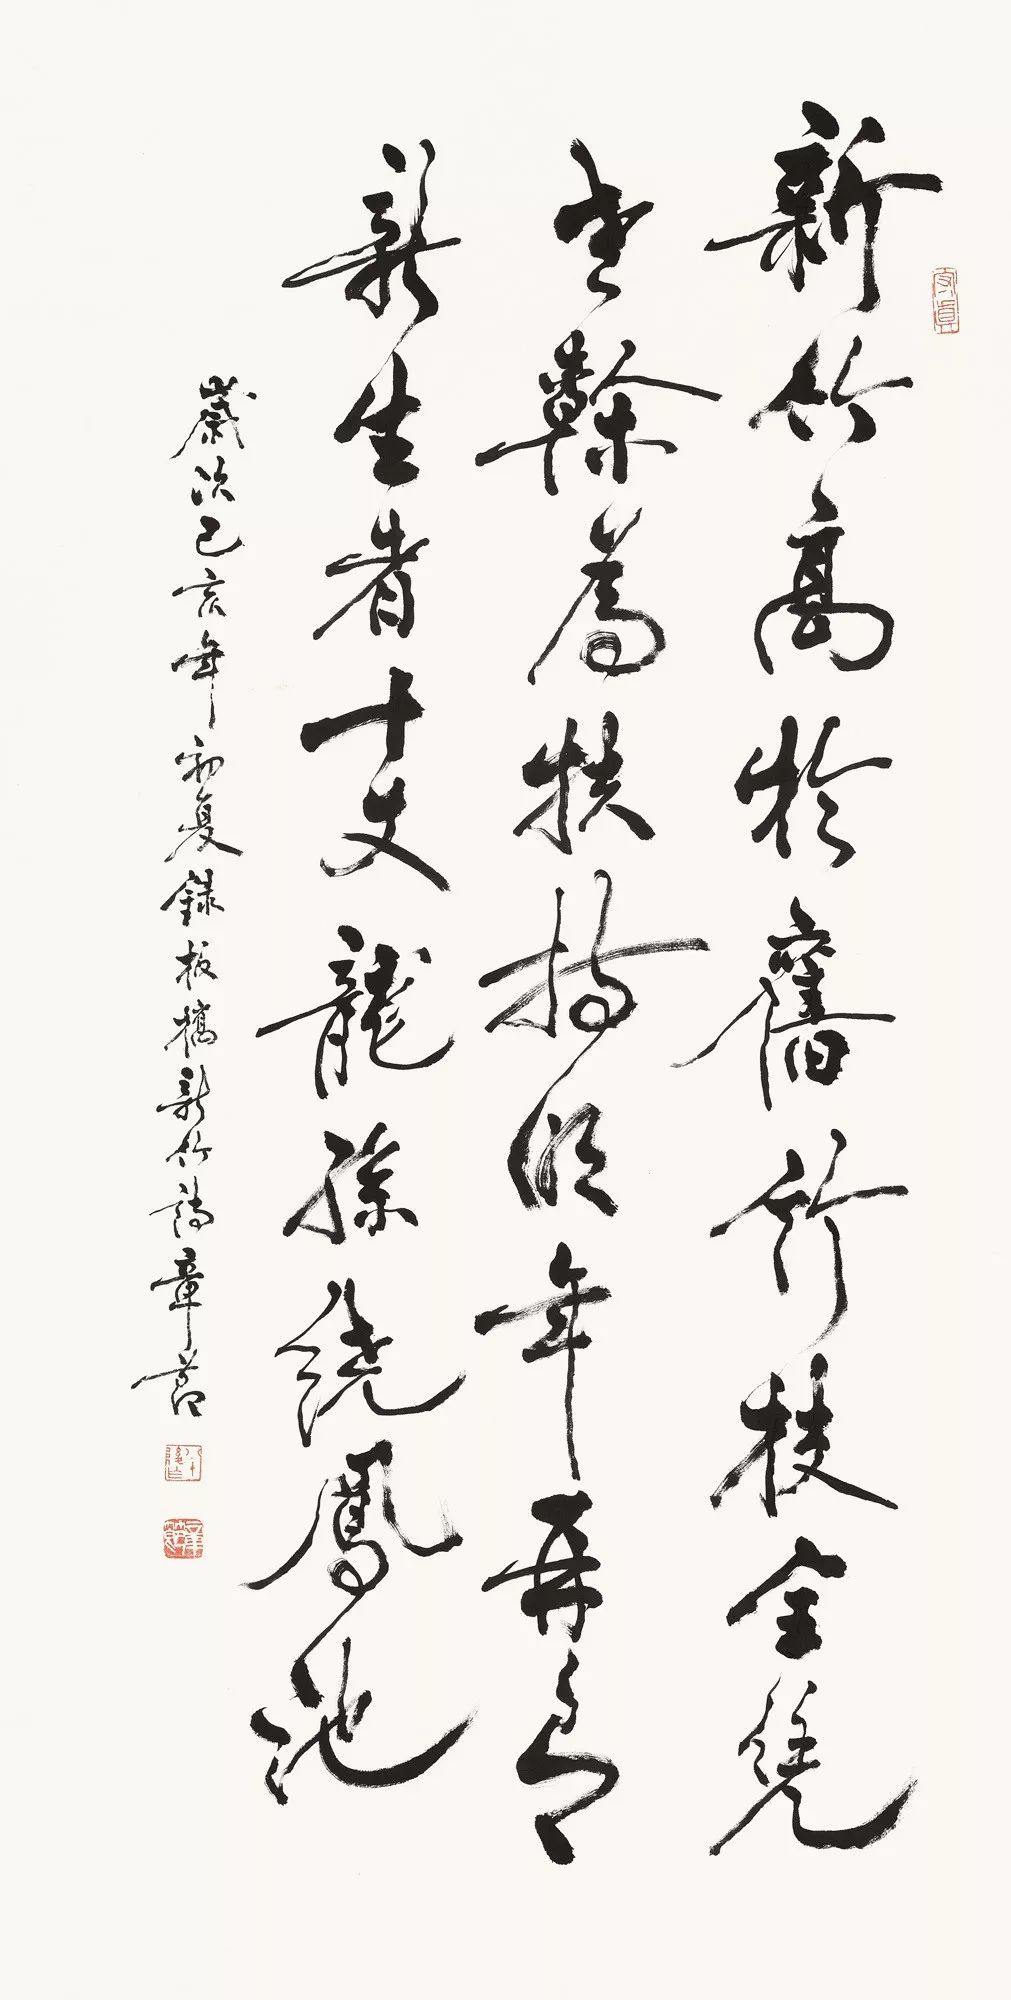 新竹高於舊竹枝全凭
老幹為扶持明年再有
新生者十丈龍孫繞鳳池
歲次己亥年初夏錄板橋新竹詩章